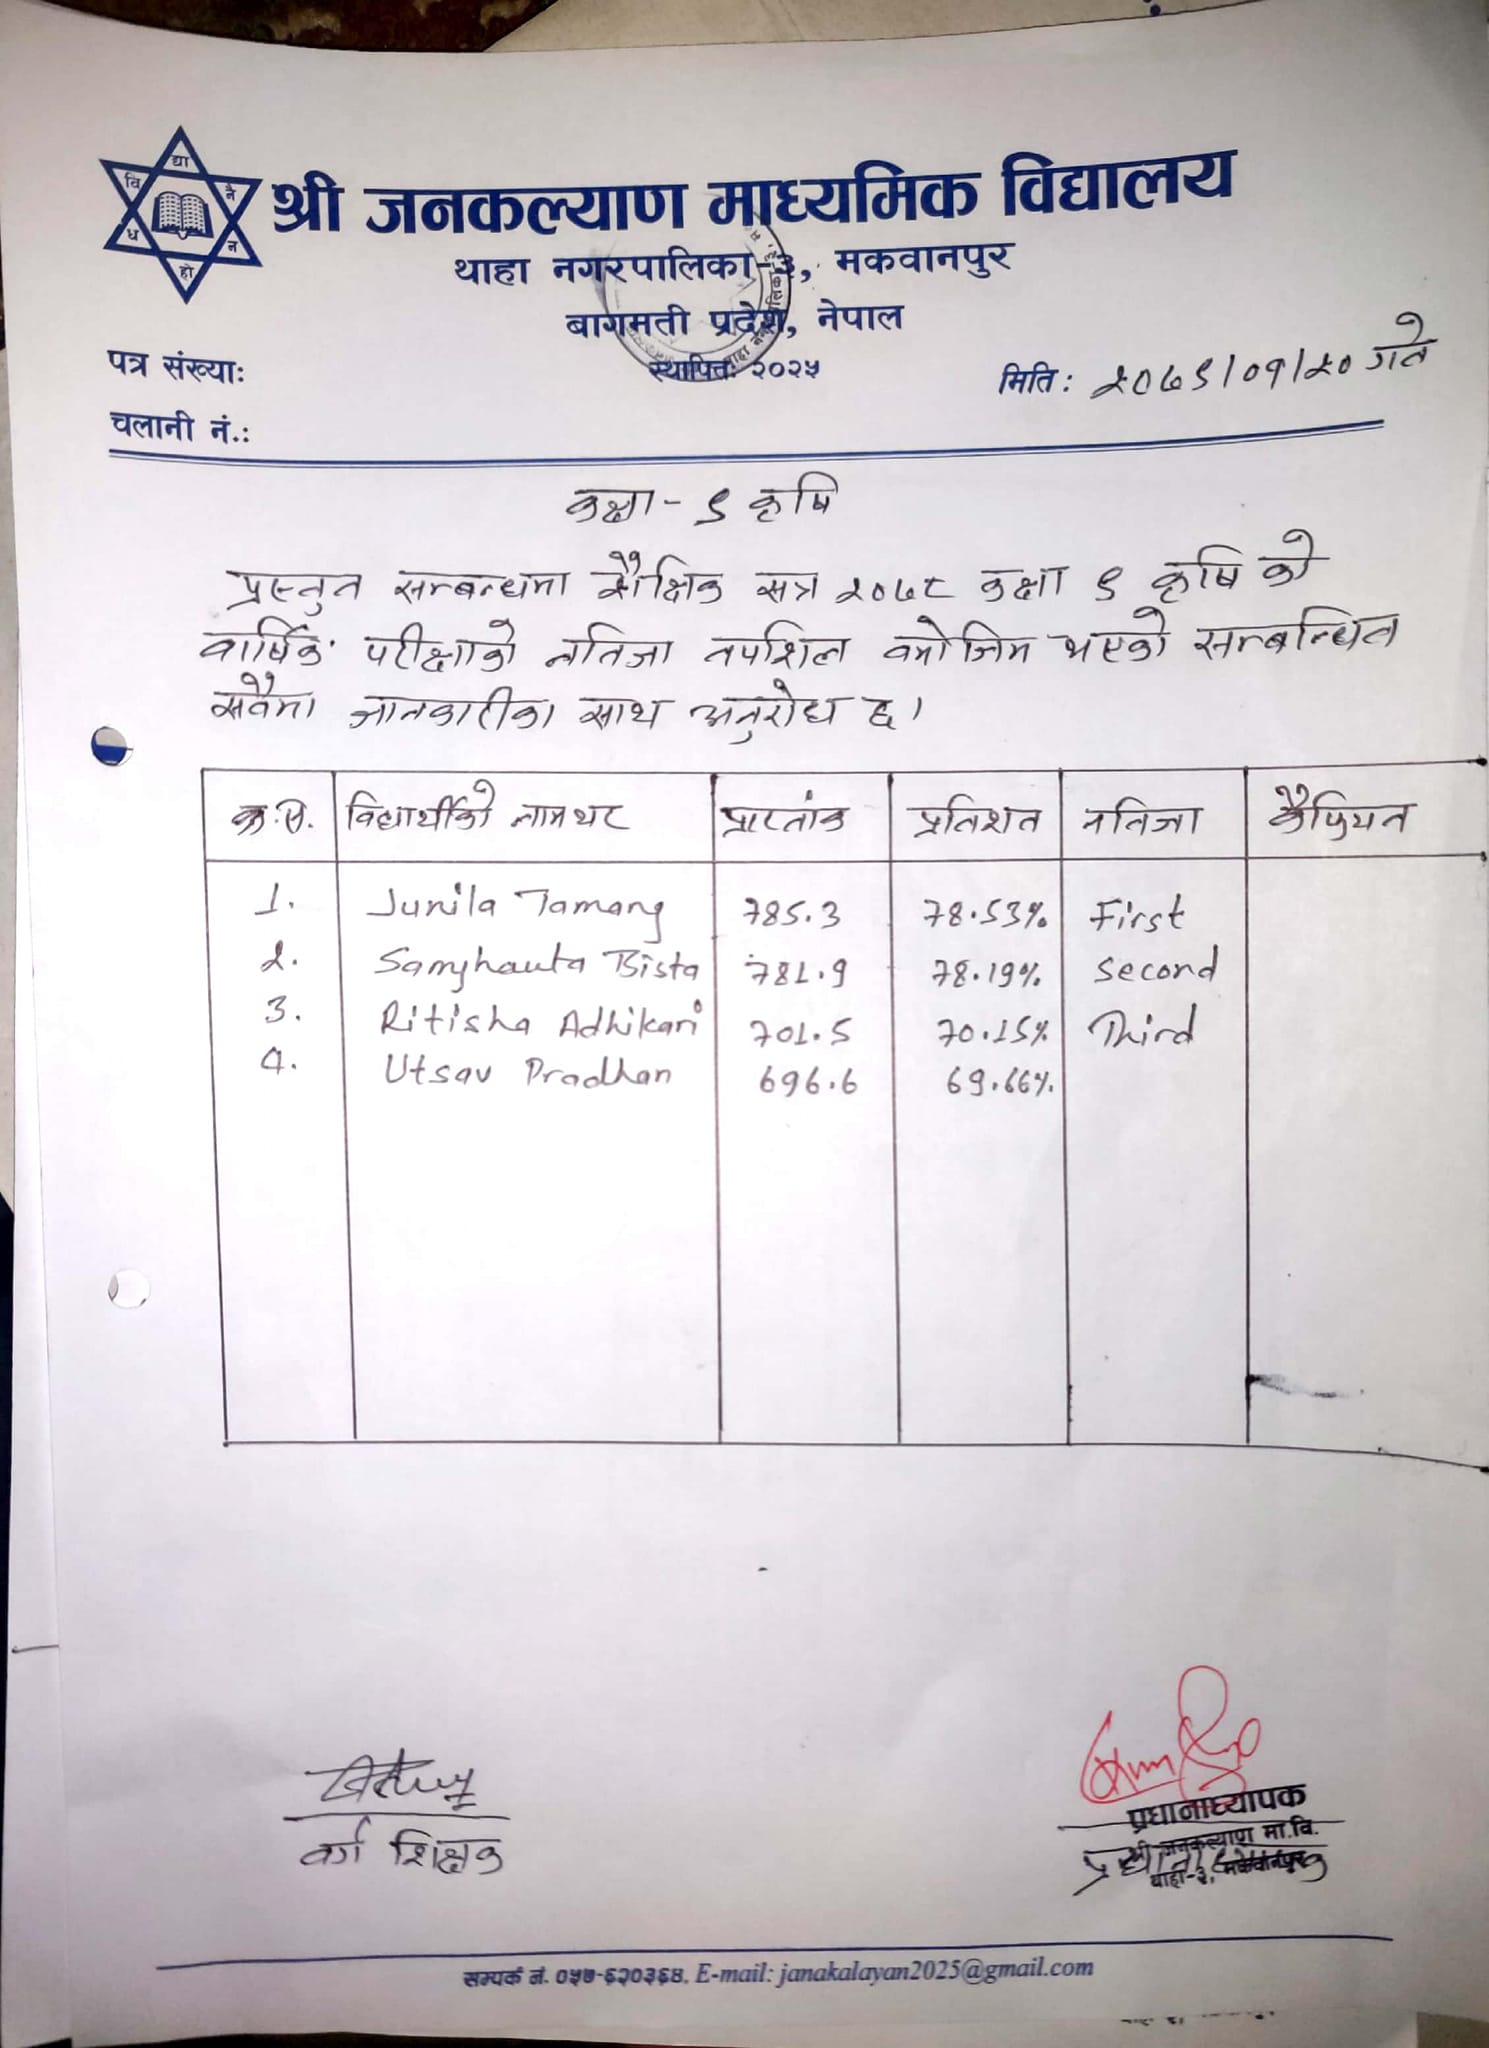 वि द्या नै ध न हो
श्री जनकल्याण माध्यमिक विद्यालय
थाहा नगरपालिका-३, मकवानपुर
बागमती प्रदेश, नेपाल
पत्र संख्याः स्थापितः २०२५ मितिः २०७९/०१/२० गते
चलानी नं.:
कक्षा - ९ कृषि
प्रस्तुत सम्बन्धमा शैक्षिक सत्र २०७८ कक्षा ९ कृषि को
वार्षिक परीक्षाको नतिजा तपशिल बमोजिम भएको सम्बन्धित
सबैमा जानकारीका साथ अनुरोध छ।
क्र.स. विद्यार्थीको नामथर प्राप्तांक प्रतिशत नतिजा कैफियत
1. Junila Tamang 785.3 78.53% First
2. Samjhauta Bista 781.9 78.19% Second
3. Ritisha Adhikari 701.5 70.15% Third
4. Utsav Pradhan 696.6 69.66%
प्रधानाध्यापक
श्री जनकल्याण मा.वि.
वर्ग शिक्षक प्रधानाध्यापक
थाहा-३, मकवानपुर
सम्पर्क नं. ०५७-६२०३६४, E-mail: janakalayan2025@gmail.com